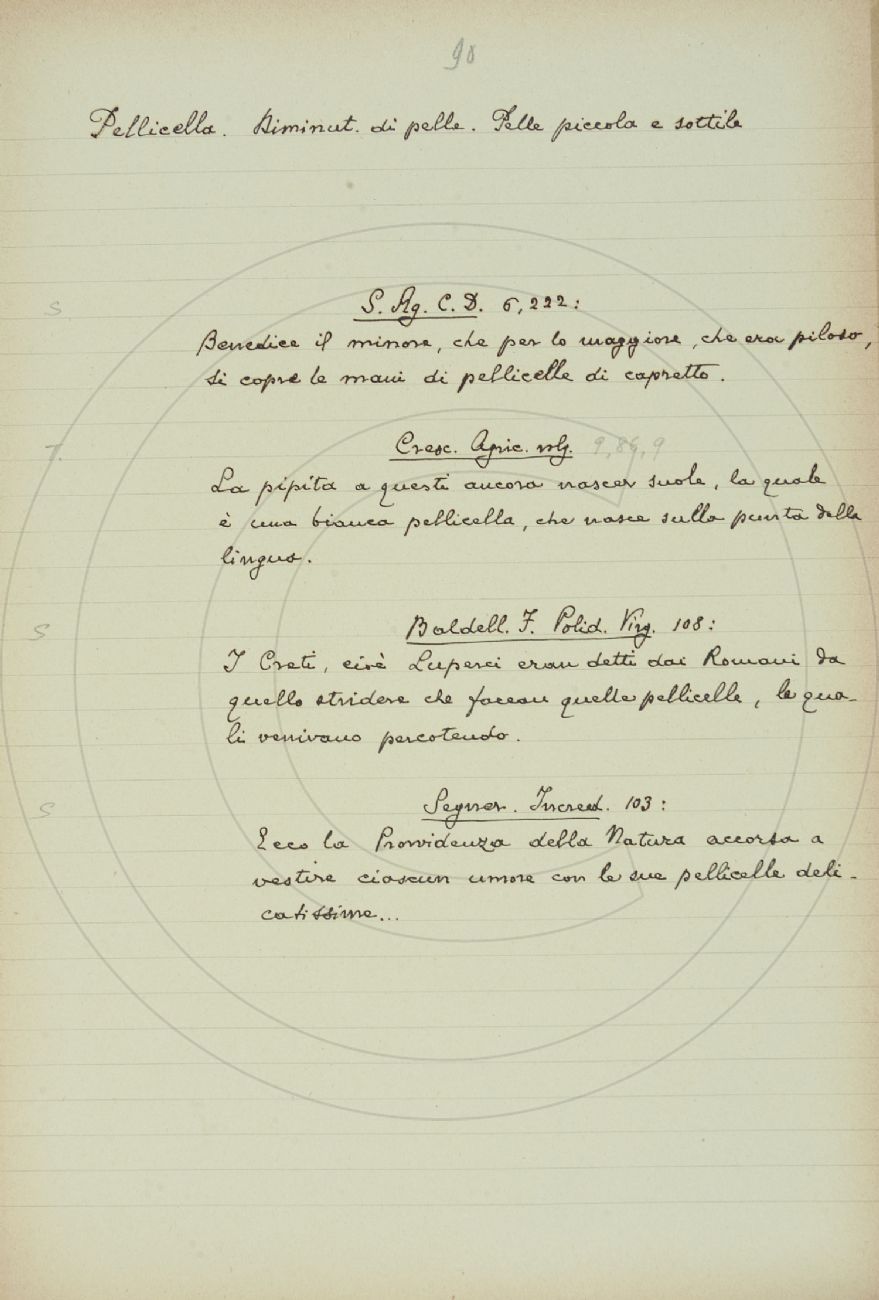 90
Pellicella. Diminut. di pelle. Pelle piccola e sottile
S
S. Ag. C. D. 6, 222:
Benedice il minore, che per lo maggiore, che era piloso,
si copre le mani di pellicelle di capretto.
T.
Cresc. Agric. volg. 9, 86, 9
La pipita a questi ancora nascer suole, la quale
è una bianca pellicella, che nasce sulla punta della
lingua.
S
Baldell. F. Polid. Virg. 108:
I Creti, cioè Luperci eran detti dai Romani da
quello stridere che facean quelle pellicelle, le qua-
li venivano percotendo.
S
Segner. Incred. 103:
Ecco la Provvidenza della Natura accorsa a
vestire ciascun umore con le sue pellicelle deli-
catissime...